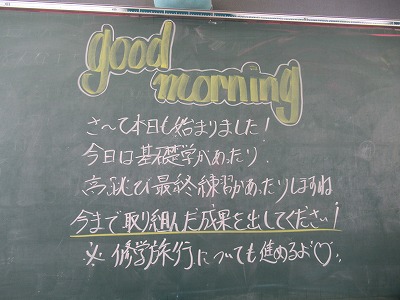 good
morning
さ〜て本日も始まりました!
今日は基礎学があったり、
高跳び最終練習があったりしますね
今まで取り組んだ成果を出してください!
※修学旅行についても進めるよ♡.